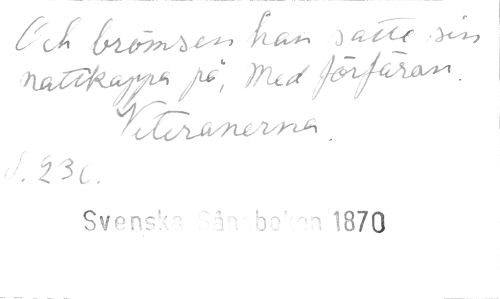 Och brömsen han satte sin
nattkappa på, Med förfäran.
Veteranerna.
S. 230.
Svenska Sångboken 1870